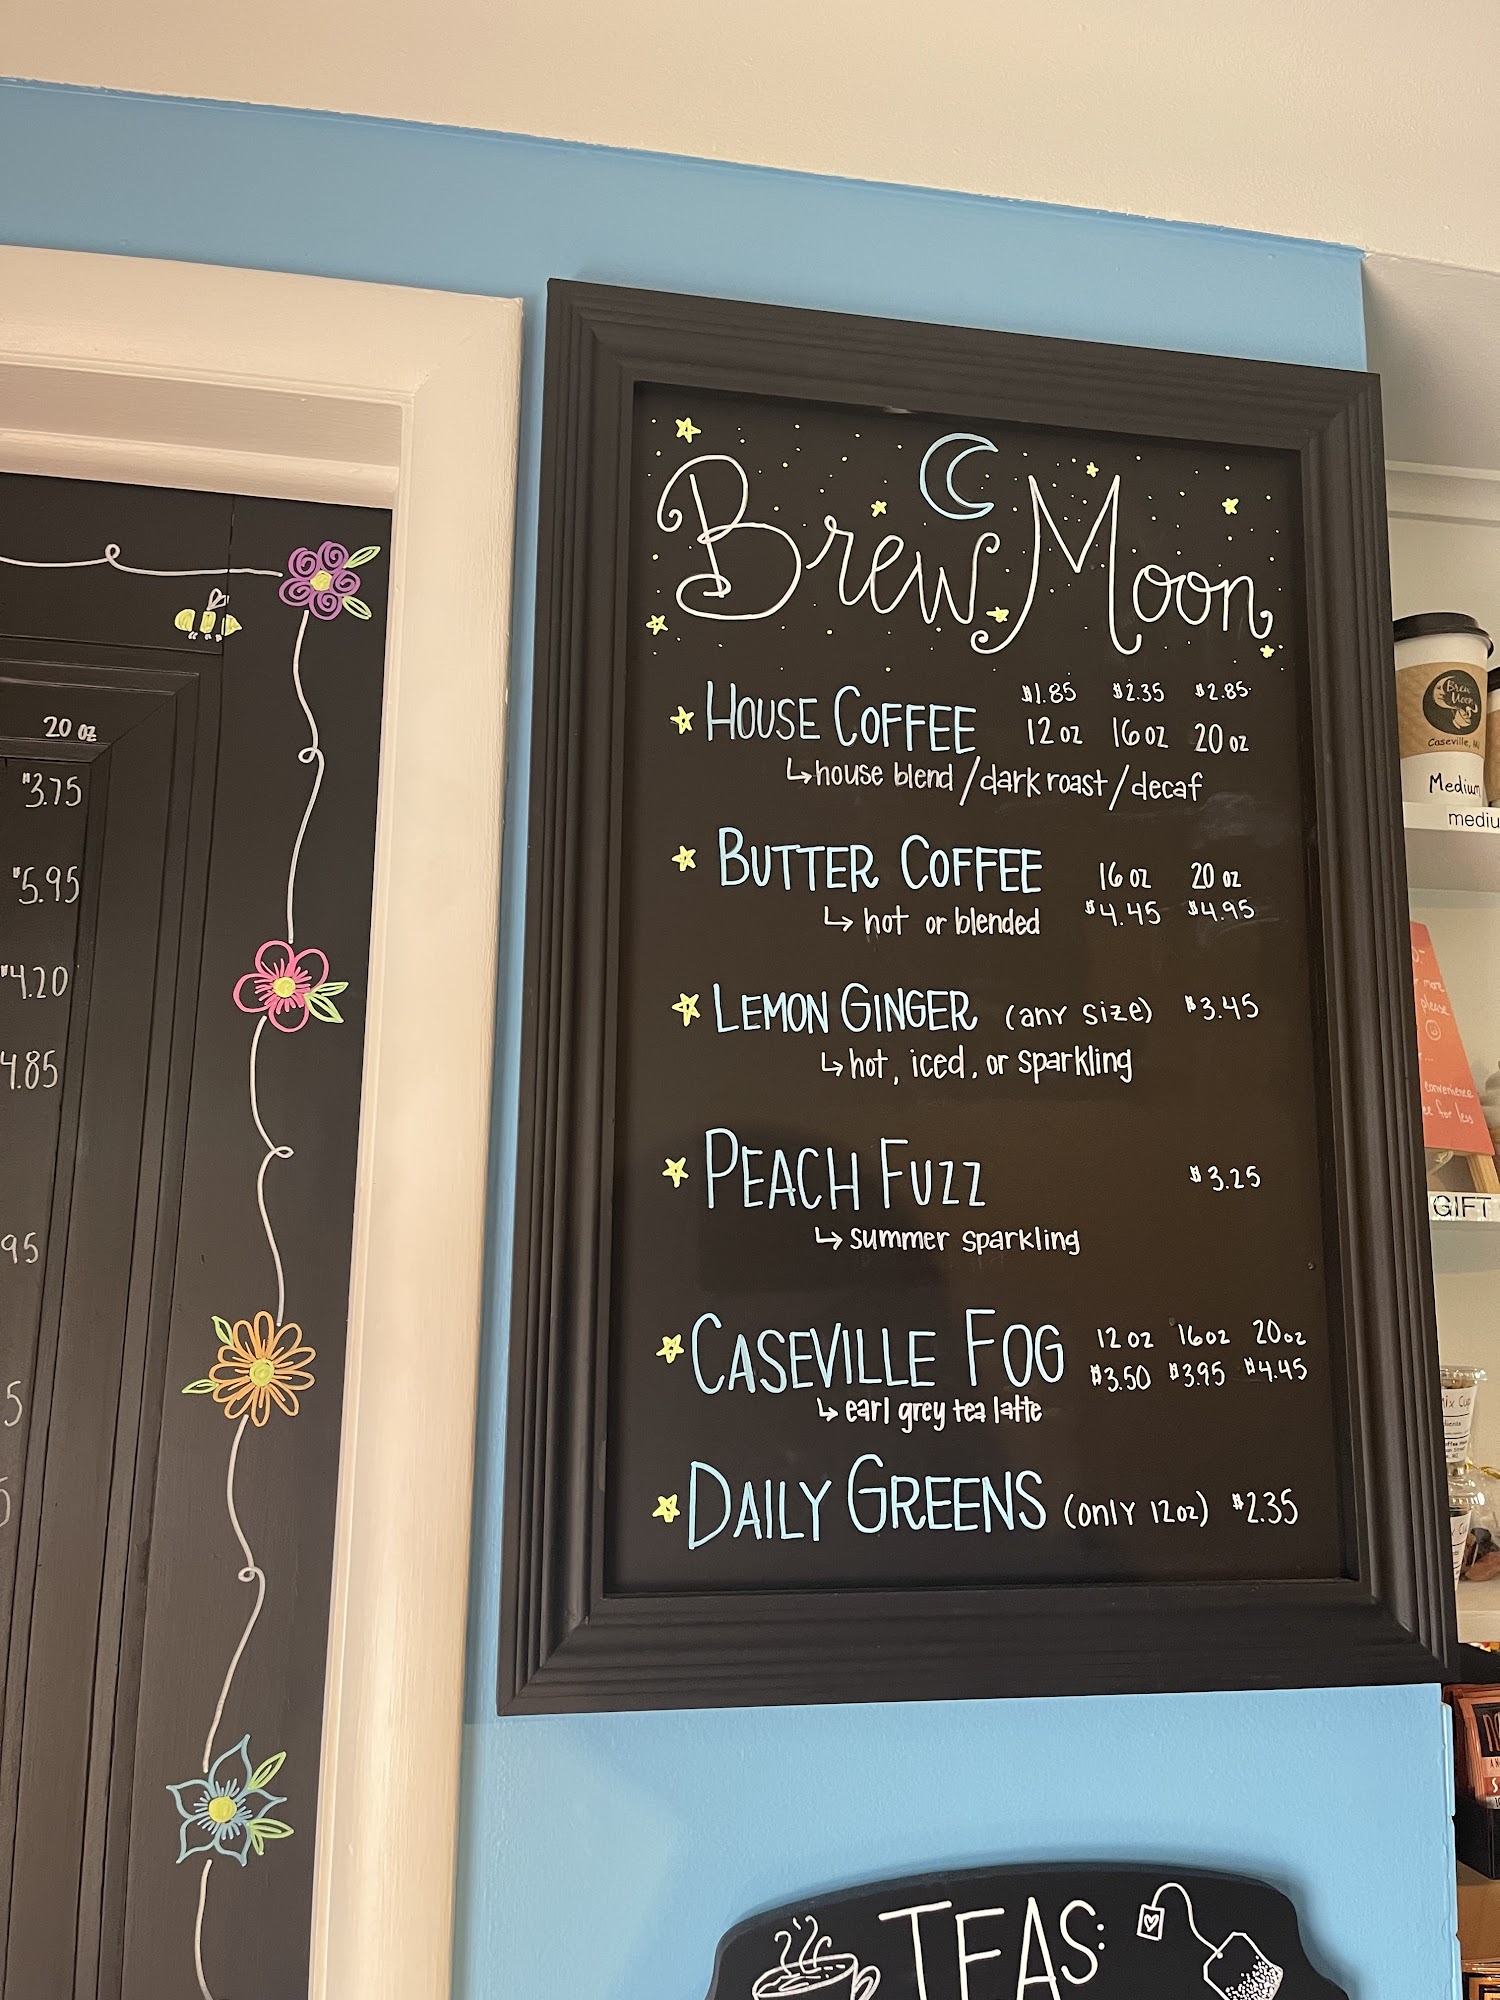 20 oz
$3.75
$5.95
$4.20
4.85
95
5
Brew Moon
House Coffee $1.85 $2.35 $2.85
12 oz 16 oz 20 oz
↳ house blend / dark roast / decaf
Butter Coffee 16 oz 20 oz
↳ hot or blended $4.45 $4.95
Lemon Ginger (any size) $3.45
↳ hot, iced, or sparkling
Peach Fuzz $3.25
↳ summer sparkling
Caseville Fog 12 oz 16 oz 20 oz
$3.50 $3.95 $4.45
↳ earl grey tea latte
Daily Greens (only 12oz) $2.35
TEAS:
Brew
Moon
Caseville, MI
Medium
mediu
more
please
convenience
for less
GIFT